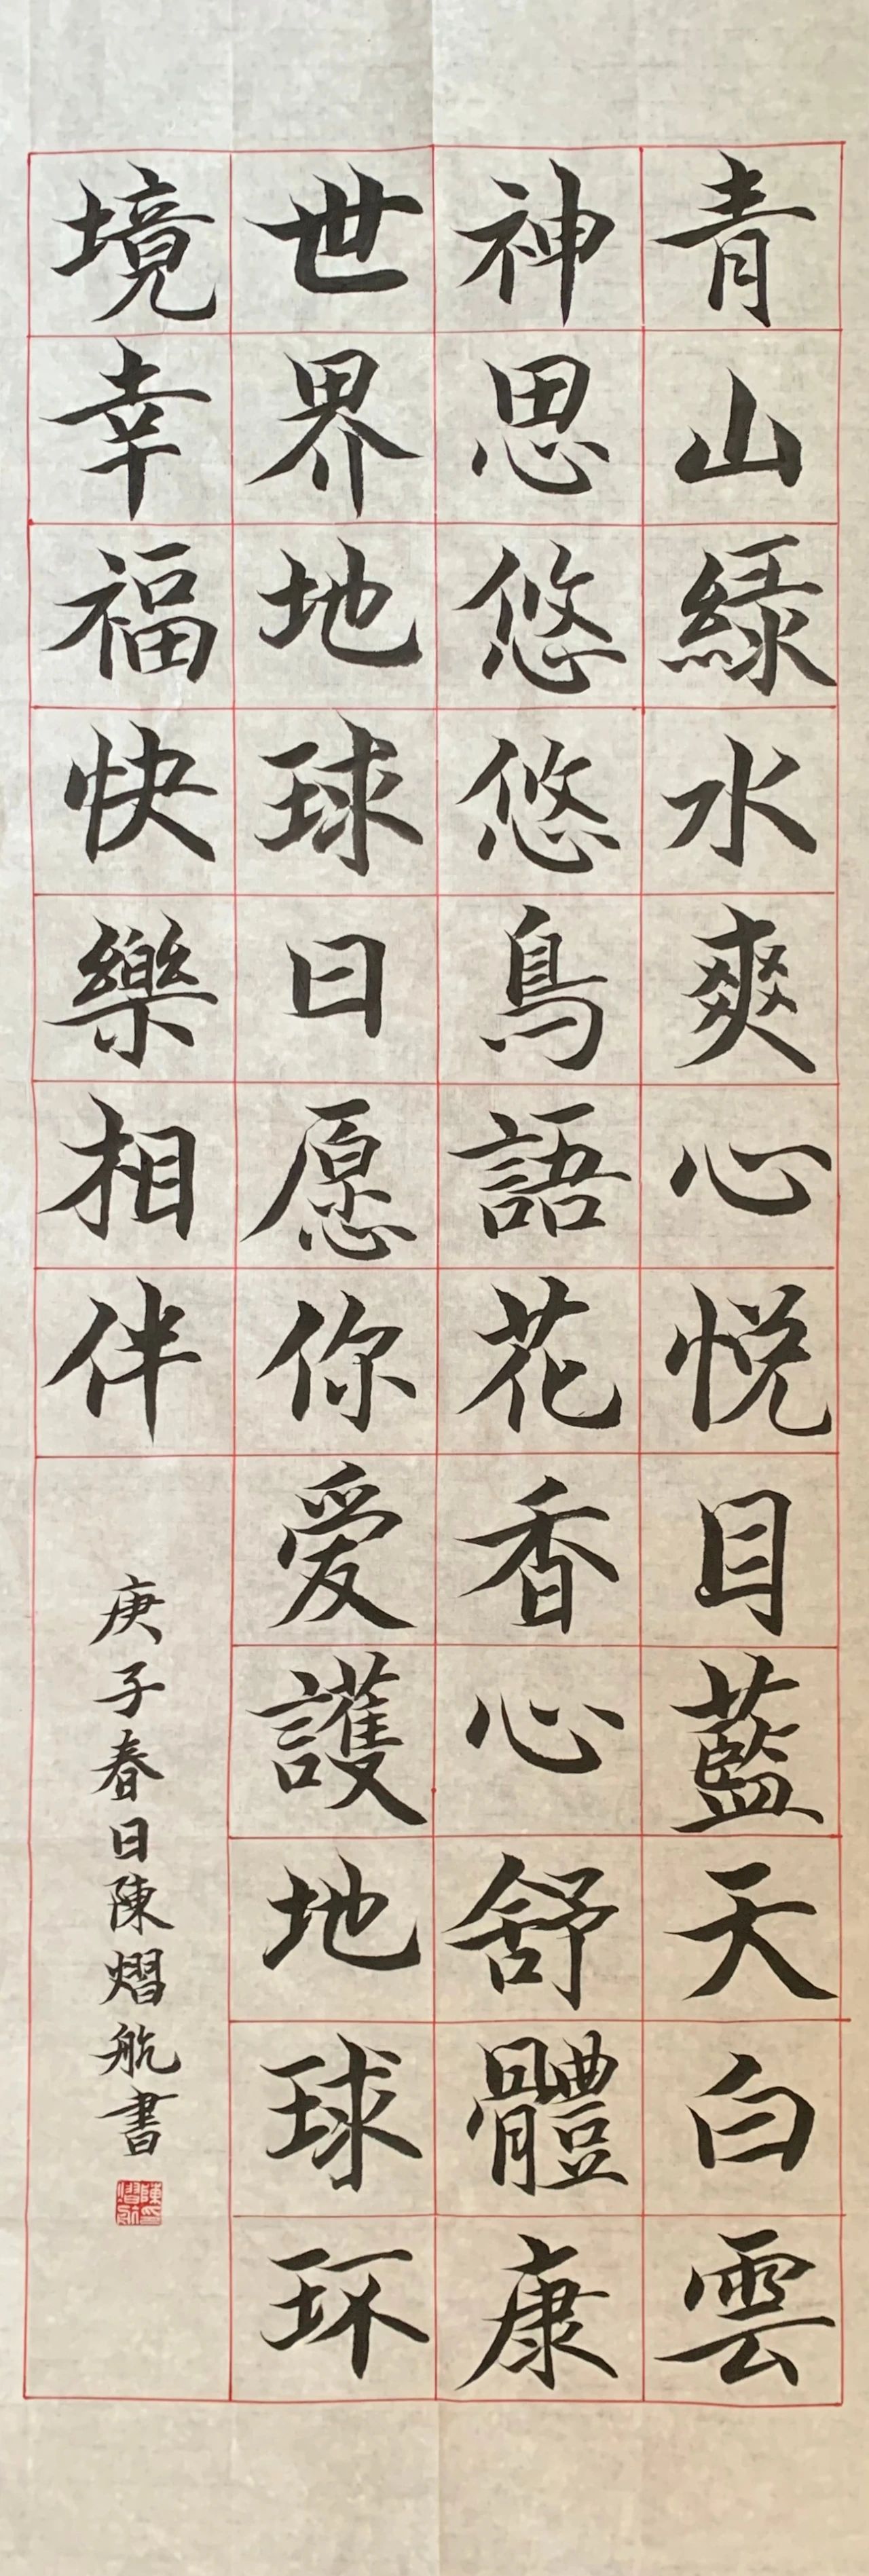 青山綠水爽心悦目藍天白雲
神思悠悠鳥語花香心舒體康
世界地球日愿你爱護地球环
境幸福快樂相伴
庚子春日陳熠航書